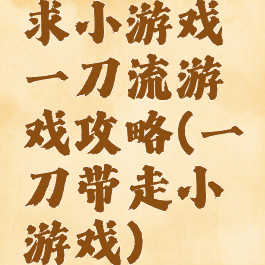 求小游戏
一刀流游
戏攻略(一
刀带走小
游戏)